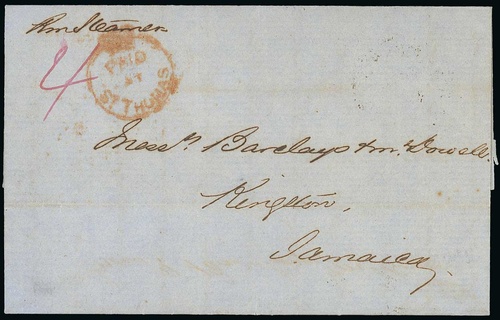 Rm Steamer
4
PAID
AT
ST THOMAS
Messrs Barclays & McDowell
Kingston,
Jamaica,